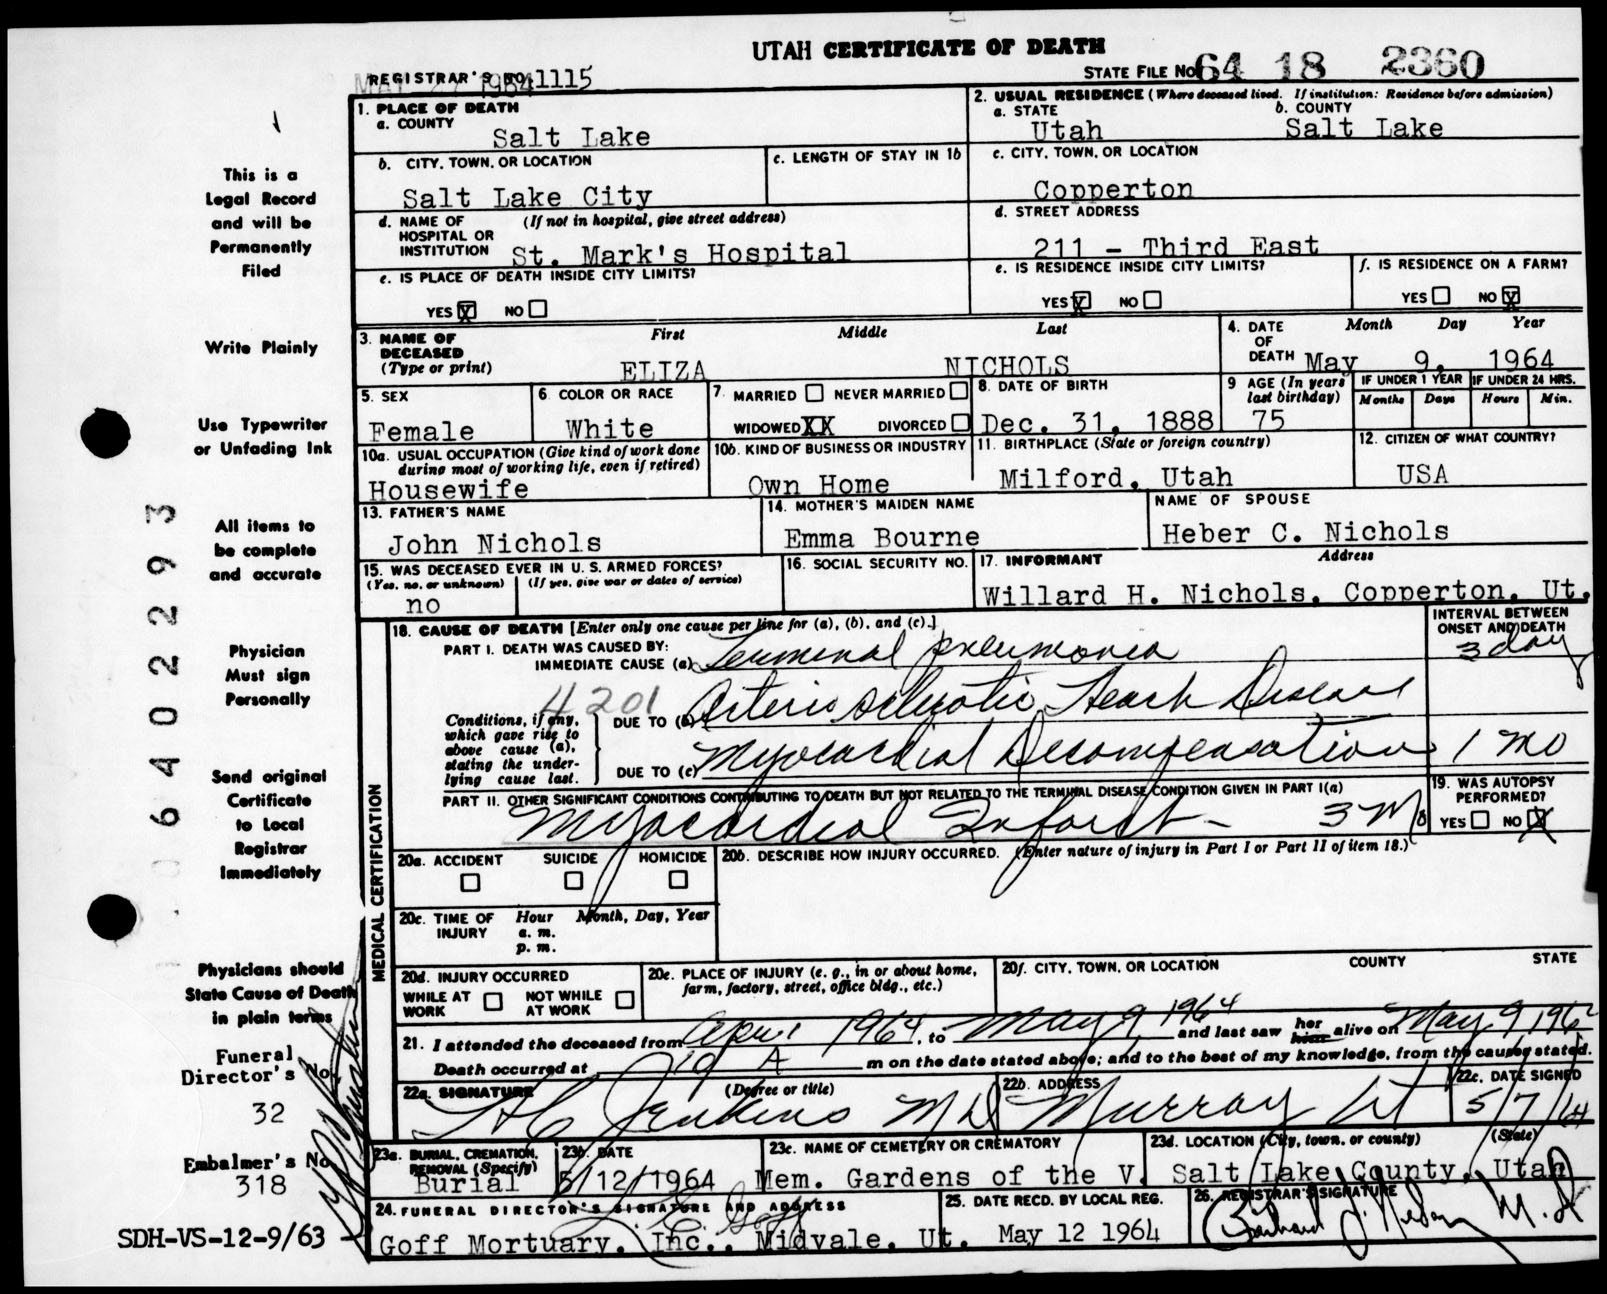 UTAH CERTIFICATE OF DEATH
REGISTRAR'S NO. 1115
STATE FILE NO. 64 18 2360
1. PLACE OF DEATH
a. COUNTY
Salt Lake
2. USUAL RESIDENCE (Where deceased lived. If institution: Residence before admission)
a. STATE b. COUNTY
Utah Salt Lake
b. CITY, TOWN, OR LOCATION
Salt Lake City
c. LENGTH OF STAY IN 1b
c. CITY, TOWN, OR LOCATION
Copperton
d. NAME OF HOSPITAL OR INSTITUTION (If not in hospital, give street address)
St. Mark's Hospital
d. STREET ADDRESS
211 - Third East
e. IS PLACE OF DEATH INSIDE CITY LIMITS?
YES X NO
e. IS RESIDENCE INSIDE CITY LIMITS?
YES X NO
f. IS RESIDENCE ON A FARM?
YES NO X
3. NAME OF DECEASED (Type or print)
First Middle Last
ELIZA NICHOLS
4. DATE OF DEATH
Month Day Year
May 9, 1964
5. SEX
Female
6 COLOR OR RACE
White
7. MARRIED NEVER MARRIED
WIDOWED XX DIVORCED
8. DATE OF BIRTH
Dec. 31, 1888
9 AGE (In years last birthday)
75
IF UNDER 1 YEAR
Months Days
IF UNDER 24 HRS.
Hours Min.
10a. USUAL OCCUPATION (Give kind of work done during most of working life, even if retired)
Housewife
10b. KIND OF BUSINESS OR INDUSTRY
Own Home
11. BIRTHPLACE (State or foreign country)
Milford, Utah
12. CITIZEN OF WHAT COUNTRY?
USA
13. FATHER'S NAME
John Nichols
14. MOTHER'S MAIDEN NAME
Emma Bourne
NAME OF SPOUSE
Heber C. Nichols
15. WAS DECEASED EVER IN U. S. ARMED FORCES?
(Yes, no, or unknown) (If yes, give war or dates of service)
no
16. SOCIAL SECURITY NO.
17. INFORMANT Address
Willard H. Nichols, Copperton, Ut.
MEDICAL CERTIFICATION
18. CAUSE OF DEATH [Enter only one cause per line for (a), (b), and (c).]
INTERVAL BETWEEN ONSET AND DEATH
PART I. DEATH WAS CAUSED BY:
IMMEDIATE CAUSE (a) Terminal pneumonia 3 day
4201
Conditions, if any, which gave rise to above cause (a), stating the underlying cause last.
DUE TO (b) Arterio sclerotic Heart Disease
DUE TO (c) Myocardial Decompensation 1 mo
PART II. OTHER SIGNIFICANT CONDITIONS CONTRIBUTING TO DEATH BUT NOT RELATED TO THE TERMINAL DISEASE CONDITION GIVEN IN PART I(a)
Myocardial Infarct - 3 Mo
19. WAS AUTOPSY PERFORMED?
YES NO X
20a. ACCIDENT SUICIDE HOMICIDE
20b. DESCRIBE HOW INJURY OCCURRED. (Enter nature of injury in Part I or Part II of item 18.)
20c. TIME OF INJURY Hour Month, Day, Year
a. m.
p. m.
20d. INJURY OCCURRED
WHILE AT WORK NOT WHILE AT WORK
20e. PLACE OF INJURY (e. g., in or about home, farm, factory, street, office bldg., etc.)
20f. CITY, TOWN, OR LOCATION COUNTY STATE
21. I attended the deceased from April 1964, to May 9 1964 and last saw her him alive on May 9
Death occurred at 10 A m on the date stated above; and to the best of my knowledge, from the causes stated.
22a. SIGNATURE (Degree or title)
H C Jenkins MD
22b. ADDRESS
Murray Ut
22c. DATE SIGNED
5/7/64
23a. BURIAL, CREMATION, REMOVAL (Specify)
Burial
23b. DATE
5/12/1964
23c. NAME OF CEMETERY OR CREMATORY
Mem. Gardens of the V.
23d. LOCATION (City, town, or county) (State)
Salt Lake County, Utah
24. FUNERAL DIRECTOR'S SIGNATURE AND ADDRESS
Goff
Goff Mortuary, Inc., Midvale, Ut.
25. DATE RECD. BY LOCAL REG.
May 12 1964
26. REGISTRAR'S SIGNATURE
M. D
This is a
Legal Record
and will be
Permanently
Filed
Write Plainly
Use Typewriter
or Unfading Ink
All items to
be complete
and accurate
Physician
Must sign
Personally
Send original
Certificate
to Local
Registrar
Immediately
Physicians should
State Cause of Death
in plain terms
Funeral
Director's No.
32
Embalmer's No.
318
SDH-VS-12-9/63
6402293